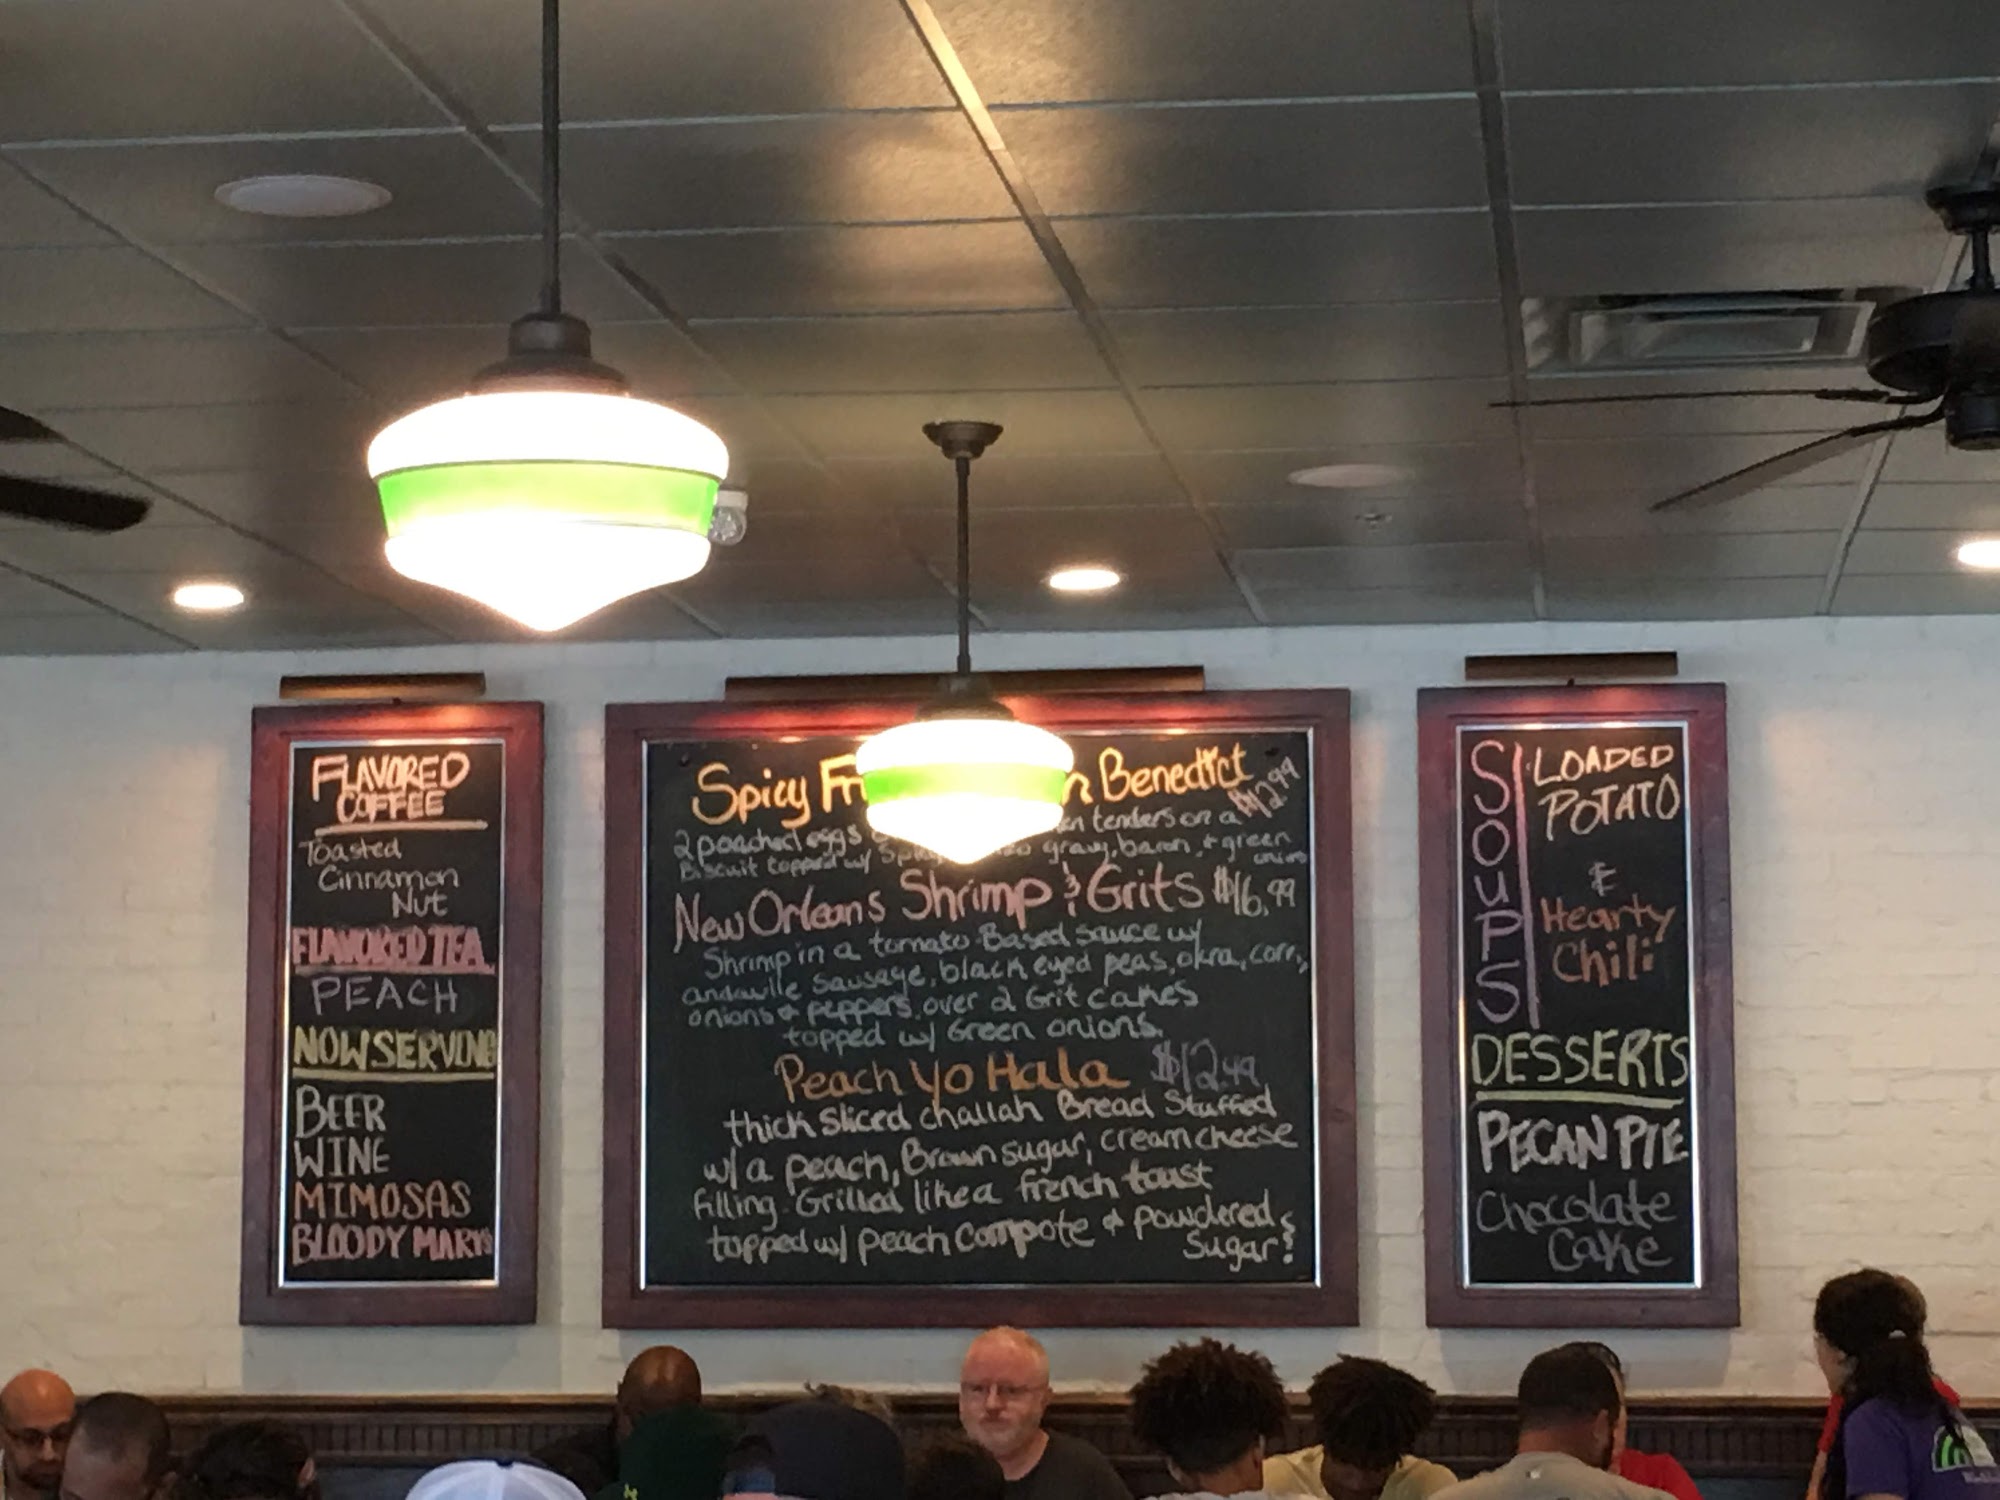 FLAVORED
COFFEE
Toasted
Cinnamon
Nut
FLAVORED TEA
PEACH
NOW SERVING
BEER
WINE
MIMOSAS
BLOODY MARYS
Spicy Benedict
$12.99
2 poached eggs tenders on a
Biscuit topped w/ gravy, bacon, & green
onions
New Orleans Shrimp & Grits $16.99
Shrimp in a tomato Based sauce w/
andouille sausage, black eyed peas, okra, corn,
onions & peppers, over 2 Grit cakes
topped w/ Green onions.
Peach Yo Hala $12.49
thick sliced challah Bread Stuffed
w/ a peach, Brown sugar, cream cheese
filling. Grilled like a french toast
topped w/ peach compote & powdered
Sugar!
SOUPS
LOADED
POTATO
&
Hearty
Chili
DESSERTS
PECAN PIE
Chocolate
Cake